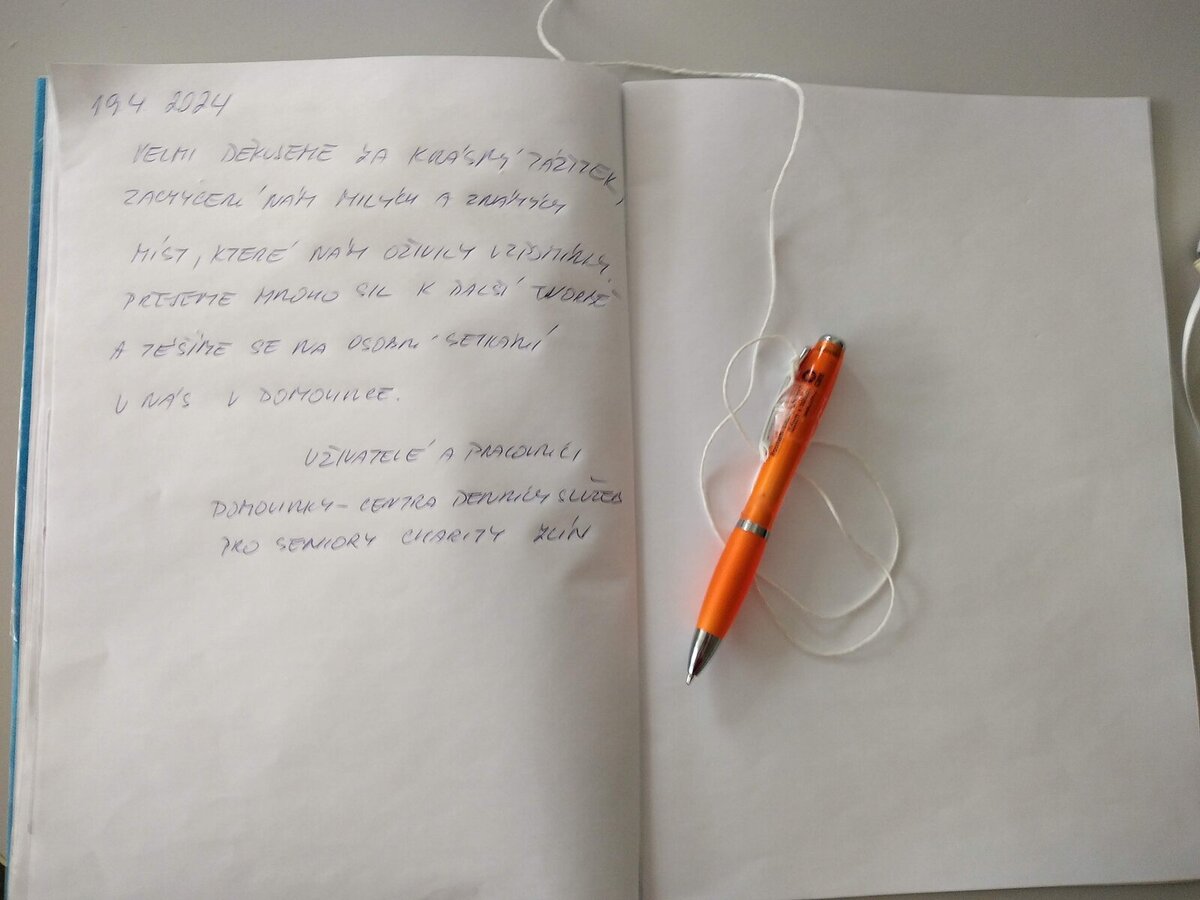 19.4 2024
VELMI DĚKUJEME ZA KRÁSNÝ ZÁŽITEK,
ZACHYCENÍ NÁM MILÝCH A ZNÁMÝCH
MÍST, KTERÉ NÁM OŽIVILY VZPOMÍNKY.
PŘEJEME MNOHO SIL K DALŠÍ TVORBĚ
A TĚŠÍME SE NA OSOBNÍ SETKÁNÍ
U NÁS V DOMOVINCE.
UŽIVATELÉ A PRACOVNÍCI
DOMOVINKY - CENTRA DENNÍCH SLUŽEB
PRO SENIORY CHARITY ZLÍN